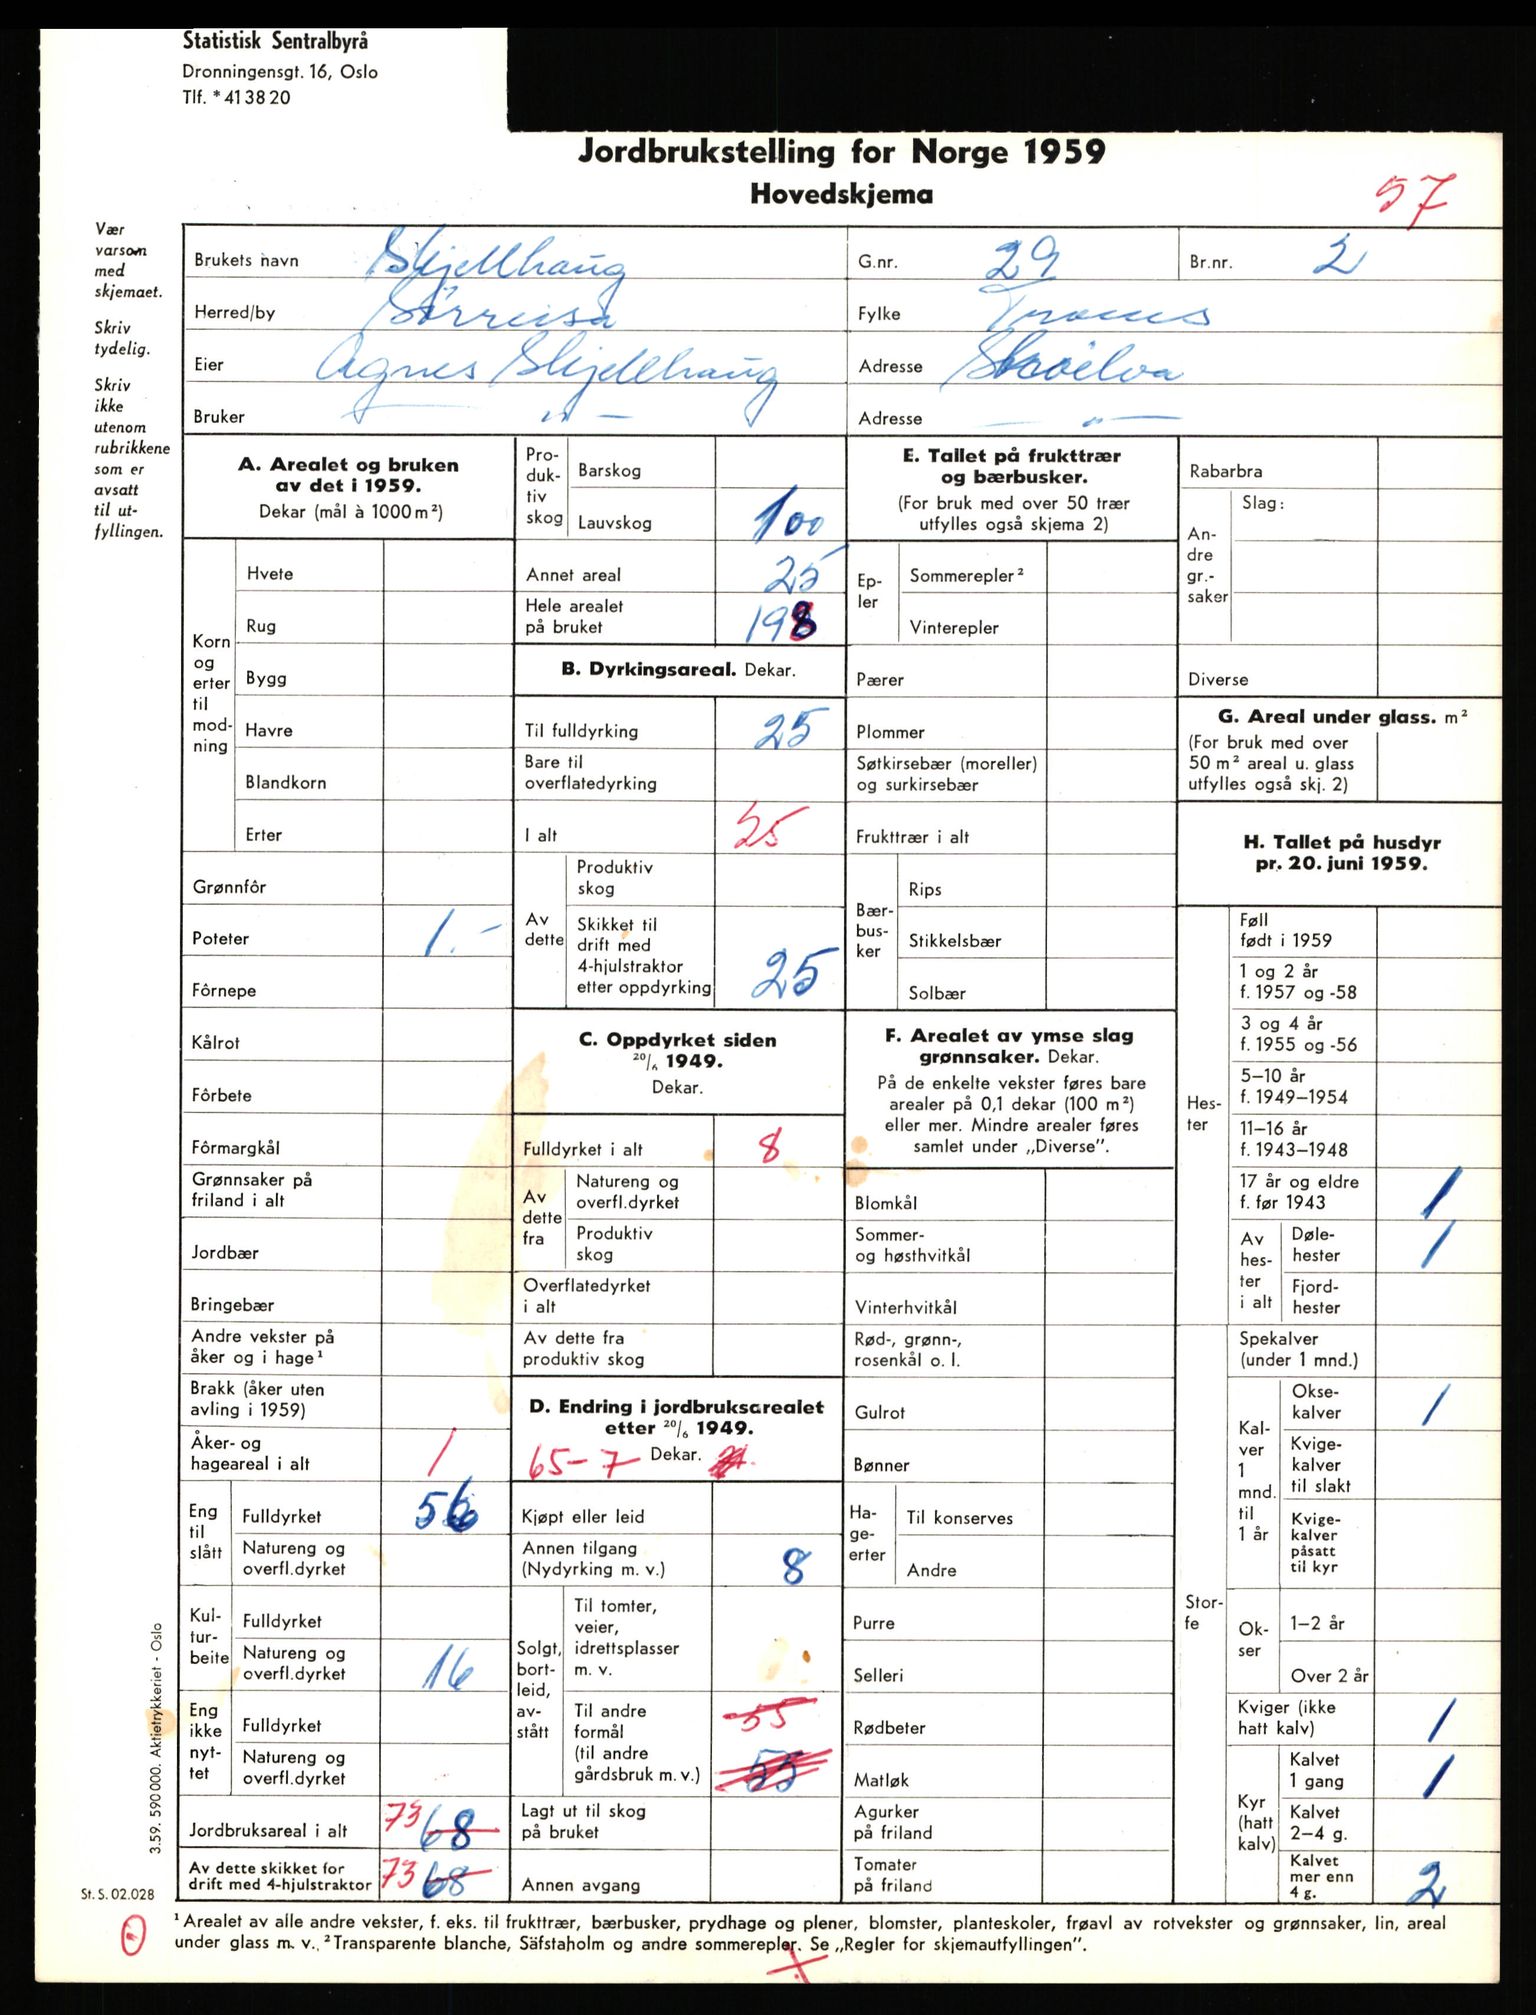 Statistisk Sentralbyrå
Dronningensgt. 16, Oslo
Tlf. * 41 38 20
Jordbrukstelling for Norge 1959
Hovedskjema
57
Vær
varsom
med
skjemaet.
Skriv
tydelig.
Skriv
ikke
utenom
rubrikkene
som er
avsatt
til ut-
fyllingen.
Brukets navn Skjellhaug G.nr. 29 Br.nr. 2
Herred/by Sörreisa Fylke Troms
Eier Agnes Skjellhaug Adresse
Bruker — " — Adresse — " —
A. Arealet og bruken
av det i 1959.
Dekar (mål à 1000 m²)
Korn
og
erter
til
mod-
ning
Hvete
Rug
Bygg
Havre
Blandkorn
Erter
Grønnfôr
Poteter 1.-
Fôrnepe
Kålrot
Fôrbete
Fôrmargkål
Grønnsaker på
friland i alt
Jordbær
Bringebær
Andre vekster på
åker og i hage¹
Brakk (åker uten
avling i 1959)
Åker- og
hageareal i alt 1
Eng
til
slått
Fulldyrket 56
Natureng og
overfl.dyrket
Kul-
tur-
beite
Fulldyrket
Natureng og
overfl.dyrket 16
Eng
ikke
nyt-
tet
Fulldyrket
Natureng og
overfl.dyrket
Jordbruksareal i alt 73 68
Av dette skikket for
drift med 4-hjulstraktor 73 68
Pro-
duk-
tiv
skog
Barskog
Lauvskog 100
Annet areal 25
Hele arealet
på bruket 198
B. Dyrkingsareal. Dekar.
Til fulldyrking 25
Bare til
overflatedyrking
I alt 25
Av
dette
Produktiv
skog
Skikket til
drift med
4-hjulstraktor
etter oppdyrking 25
C. Oppdyrket siden
20/6 1949.
Dekar.
Fulldyrket i alt 8
Av
dette
fra
Natureng og
overfl.dyrket
Produktiv
skog
Overflatedyrket
i alt
Av dette fra
produktiv skog
D. Endring i jordbruksarealet
etter 20/6 1949.
65-7 Dekar.
Kjøpt eller leid
Annen tilgang
(Nydyrking m. v.) 8
Solgt,
bort-
leid,
av-
stått
Til tomter,
veier,
idrettsplasser
m. v.
Til andre
formål
(til andre
gårdsbruk m. v.) 55
55
Lagt ut til skog
på bruket
Annen avgang
E. Tallet på frukttrær
og bærbusker.
(For bruk med over 50 trær
utfylles også skjema 2)
Ep-
ler
Sommerepler²
Vinterepler
Pærer
Plommer
Søtkirsebær (moreller)
og surkirsebær
Frukttrær i alt
Bær-
bus-
ker
Rips
Stikkelsbær
Solbær
F. Arealet av ymse slag
grønnsaker. Dekar.
På de enkelte vekster føres bare
arealer på 0,1 dekar (100 m²)
eller mer. Mindre arealer føres
samlet under „Diverse”.
Blomkål
Sommer-
og høsthvitkål
Vinterhvitkål
Rød-, grønn-,
rosenkål o. l.
Gulrot
Bønner
Ha-
ge-
erter
Til konserves
Andre
Purre
Selleri
Rødbeter
Matløk
Agurker
på friland
Tomater
på friland
Rabarbra
An-
dre
gr.-
saker
Slag:
Diverse
G. Areal under glass. m²
(For bruk med over
50 m² areal u. glass
utfylles også skj. 2)
H. Tallet på husdyr
pr. 20. juni 1959.
Hes-
ter
Føll
født i 1959
1 og 2 år
f. 1957 og -58
3 og 4 år
f. 1955 og -56
5–10 år
f. 1949–1954
11–16 år
f. 1943–1948
17 år og eldre
f. før 1943 1
Av
hes-
ter
i alt
Døle-
hester 1
Fjord-
hester
Stor-
fe
Spekalver
(under 1 mnd.)
Kal-
ver
1
mnd.
til
1 år
Okse-
kalver 1
Kvige-
kalver
til slakt
Kvige-
kalver
påsatt
til kyr
Ok-
ser
1–2 år
Over 2 år
Kviger (ikke
hatt kalv) 1
Kyr
(hatt
kalv)
Kalvet
1 gang 1
Kalvet
2–4 g.
Kalvet
mer enn
4 g. 2
3.59. 590 000. Aktietrykkeriet - Oslo
St. S. 02.028
¹ Arealet av alle andre vekster, f. eks. til frukttrær, bærbusker, prydhage og plener, blomster, planteskoler, frøavl av rotvekster og grønnsaker, lin, areal
under glass m. v.. ² Transparente blanche, Säfstaholm og andre sommerepler. Se „Regler for skjemautfyllingen”.